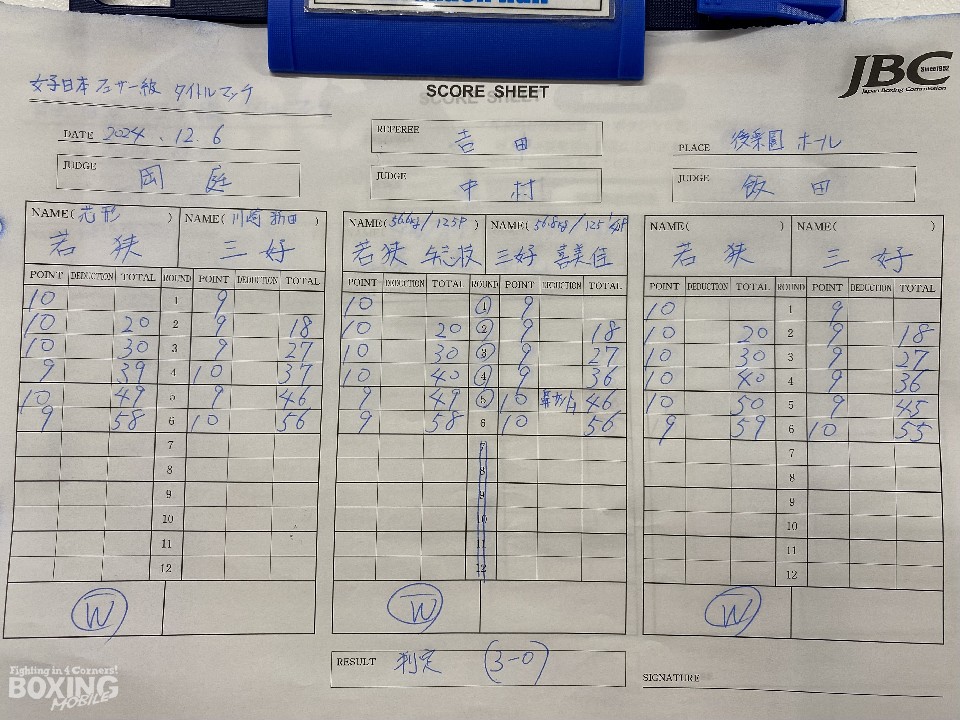 JBC
Since1952
Japan Boxing Commission
女子日本フェザー級 タイトルマッチ
SCORE SHEET
DATE 2024.12.6
REFEREE 吉田
PLACE 後楽園ホール
JUDGE 岡庭
JUDGE 中村
JUDGE 飯田
NAME( ) NAME(川崎新田)
若狭 三好
POINT DEDUCTION TOTAL ROUND POINT DEDUCTION TOTAL
10 1 9
10 20 2 9 18
10 30 3 9 27
9 39 4 10 37
10 49 5 9 46
9 58 6 10 56
7
8
9
10
11
12
W
NAME(56.6kg/125P) NAME(56.8kg/125 1/4P)
若狭 三好 喜美佳
POINT DEDUCTION TOTAL ROUND POINT DEDUCTION TOTAL
10 1 9
10 20 2 9 18
10 30 3 9 27
10 40 4 9 36
9 49 5 10 46
9 58 6 10 56
7
8
9
10
11
12
W
NAME( ) NAME( )
若狭 三好
POINT DEDUCTION TOTAL ROUND POINT DEDUCTION TOTAL
10 1 9
10 20 2 9 18
10 30 3 9 27
10 40 4 9 36
10 50 5 9 45
9 59 6 10 55
7
8
9
10
11
12
W
RESULT 判定 (3-0)
SIGNATURE
Fighting in 4 Corners!
BOXING
MOBILE